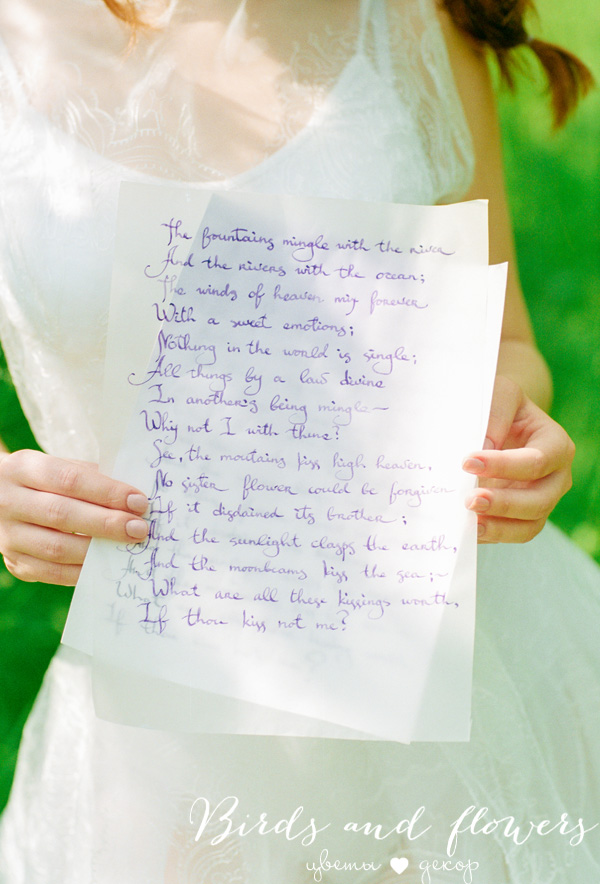 The fountains mingle with the river
And the rivers with the ocean;
The winds of heaven mix forever
With a sweet emotions;
Nothing in the world is single;
All things by a law divine
In another's being mingle~
Why not I with thine?
See, the moutains kiss high heaven,
No sister flower could be forgiven
If it disdained its brother;
And the sunlight clasps the earth,
And the moonbeams kiss the sea;~
What are all these kissings worth,
If thou kiss not me?
Birds and flowers
цветы ♥ декор